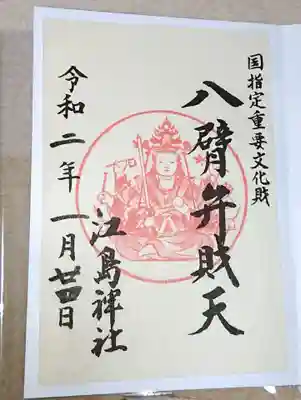 国指定重要文化財
八臂弁財天
江島神社
令和二年一月廿四日